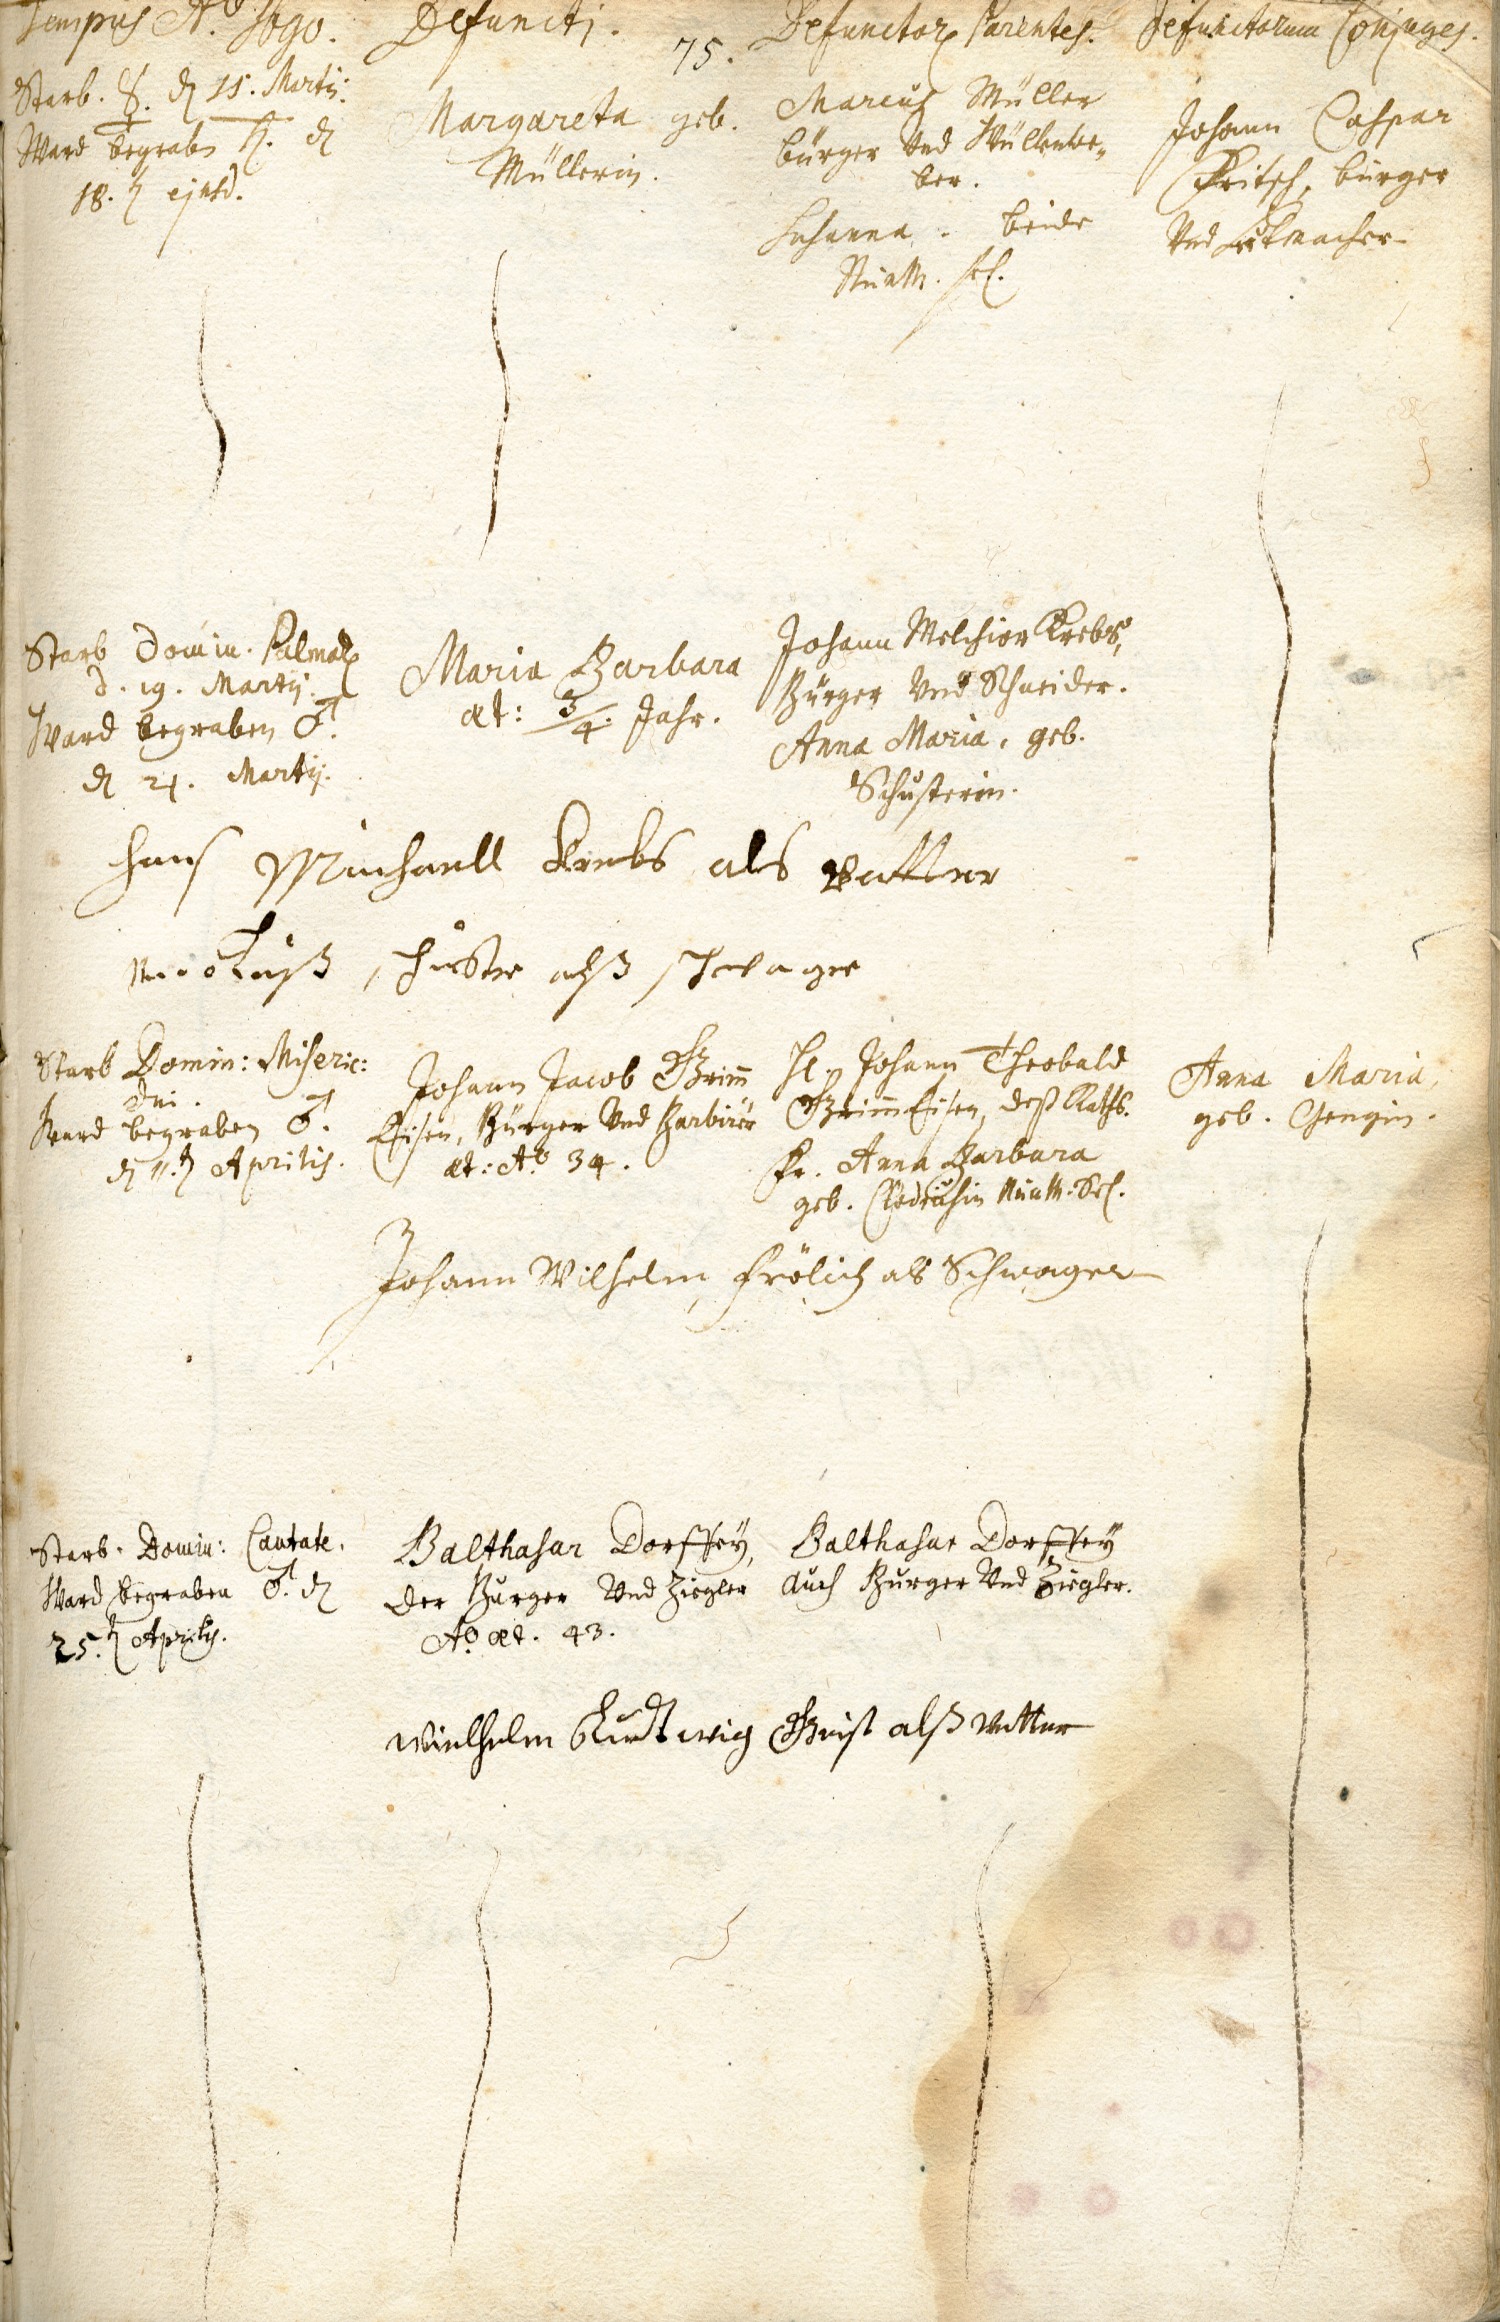 Tempus Aō. 1690. Defuncti. 75. Defunctor. Parentes. Defunctorum Conjuges.
Starb. ☿. d 15. Martij.
Ward begrabn ♄. d
18. ejusd.
Margareta geb.
Müllerin.
Marcus Müller
bürger Vnd Wüllenwe-
ber.
Susanna. beide
sel.
Johann Caspar
Fritsch, bürger
Vnd
Starb Domin. Palmar.
d. 19. Martij.
Ward begraben ♂.
d 21. Martij.
Maria Barbara
æt: 3/4. Jahr.
Johann Melchior Krebs,
Bürger Vnd Schneider.
Anna Maria, geb.
Schusterin.
Hans Michaell Krebs als vatter
alß schwager
Starb Domin: Miseric:
Dni.
Ward begraben ♂.
d 11. Aprilis.
Johann Jacob Grim
Eisen, Bürger Vnd Barbirer
æt: Aō 34.
H. Johann Theobald
Grim Eisen, deß Raths.
Fr. Anna Barbara
geb. Sel.
Anna Maria,
geb. Gengin.
Johann Wilhelm Frölich als Schwager
Starb. Domin: Cantate.
Ward begraben ♂. d
25. Aprilis.
Balthasar Dorffeÿ,
der Burger Vnd Ziegler
Aō æt. 43.
Balthasar Dorffeÿ
auch Burger Vnd Ziegler.
Wielhelm Ludtwig Geist alß Vetter